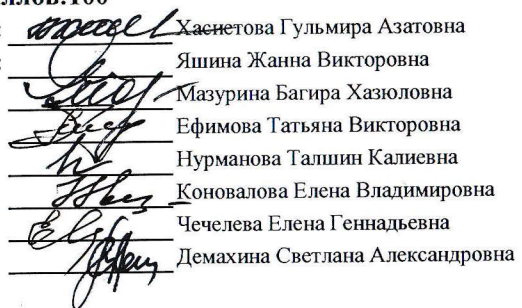 Хасиетова Гульмира Азатовна
Яшина Жанна Викторовна
Мазурина Багира Хазюловна
Ефимова Татьяна Викторовна
Нурманова Талшин Калиевна
Коновалова Елена Владимировна
Чечелева Елена Геннадьевна
Демахина Светлана Александровна